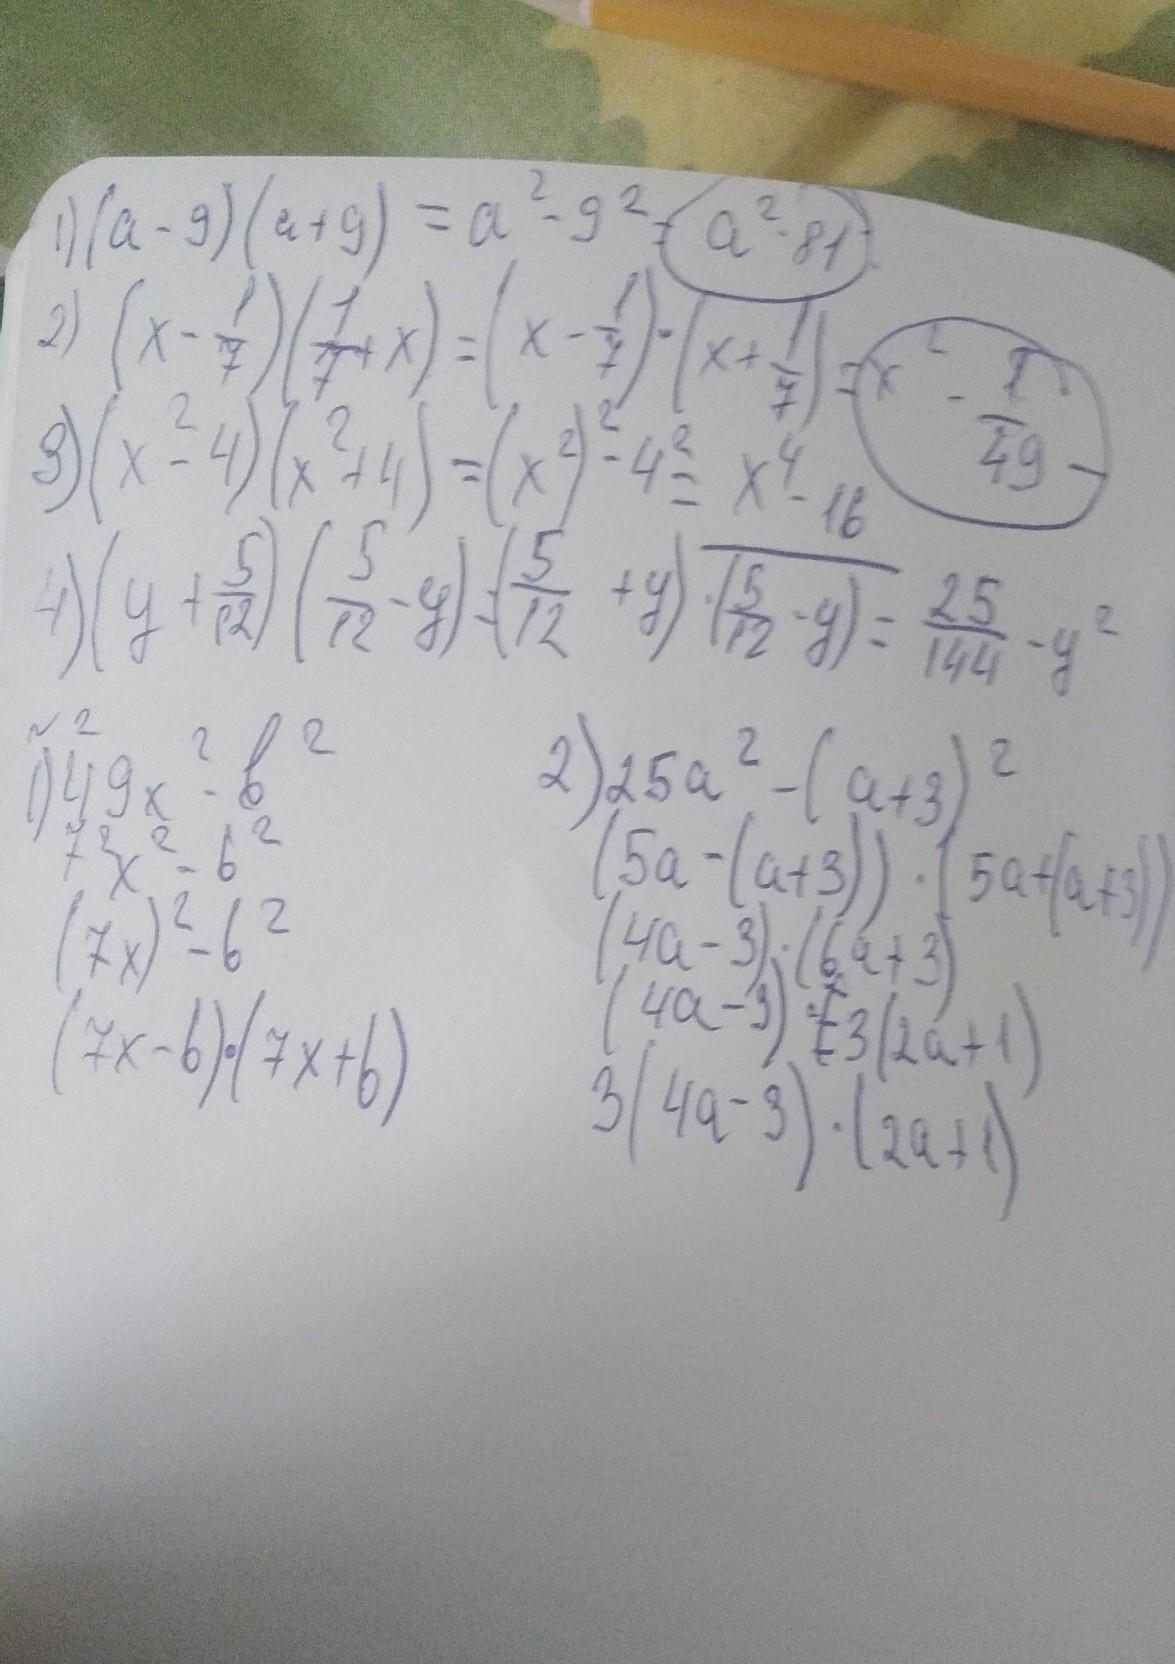 1) (a - 9)(a + 9) = a² - 9² = a² - 81
2) (x - 1/7)(1/7 + x) = (x - 1/7) · (x + 1/7) = x² - 1/49
3) (x² - 4)(x² + 4) = (x²)² - 4² = x⁴ - 16
4) (y + 5/12)(5/12 - y) = (5/12 + y) · (5/12 - y) = 25/144 - y²
№2
1) 49x² - b²
7²x² - b²
(7x)² - b²
(7x - b) · (7x + b)
2) 25a² - (a + 3)²
(5a - (a + 3)) · (5a + (a + 3))
(4a - 3) · (6a + 3)
(4a - 3) · 3(2a + 1)
3(4a - 3) · (2a + 1)